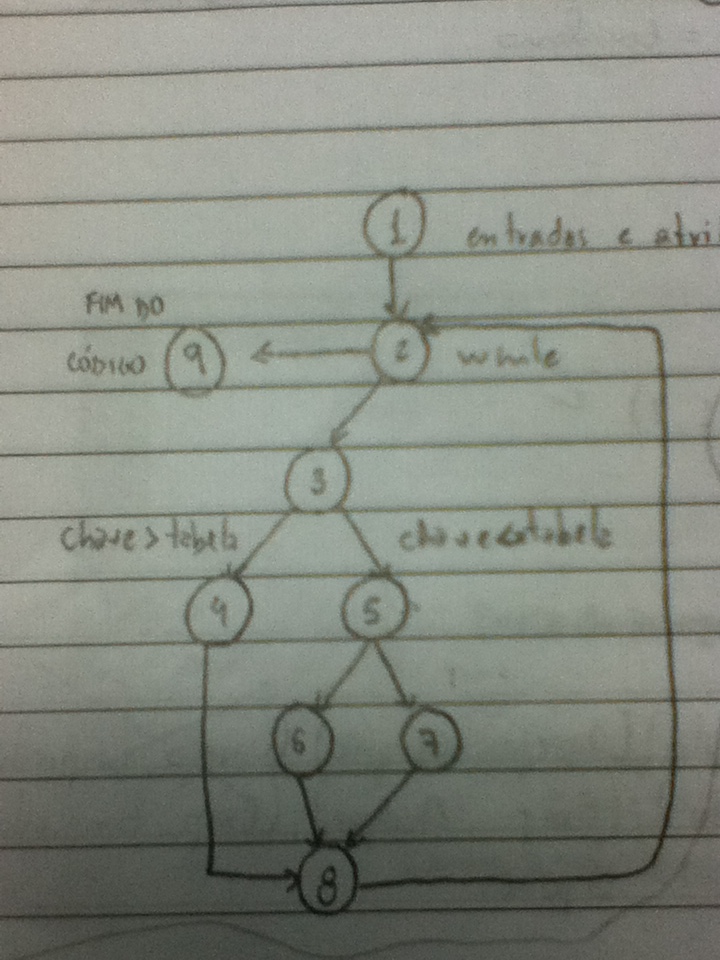 1 entradas e atri
FIM DO
CÓDIGO 9 2 while
3
chave > tabela chave < tabela
4 5
6 7
8